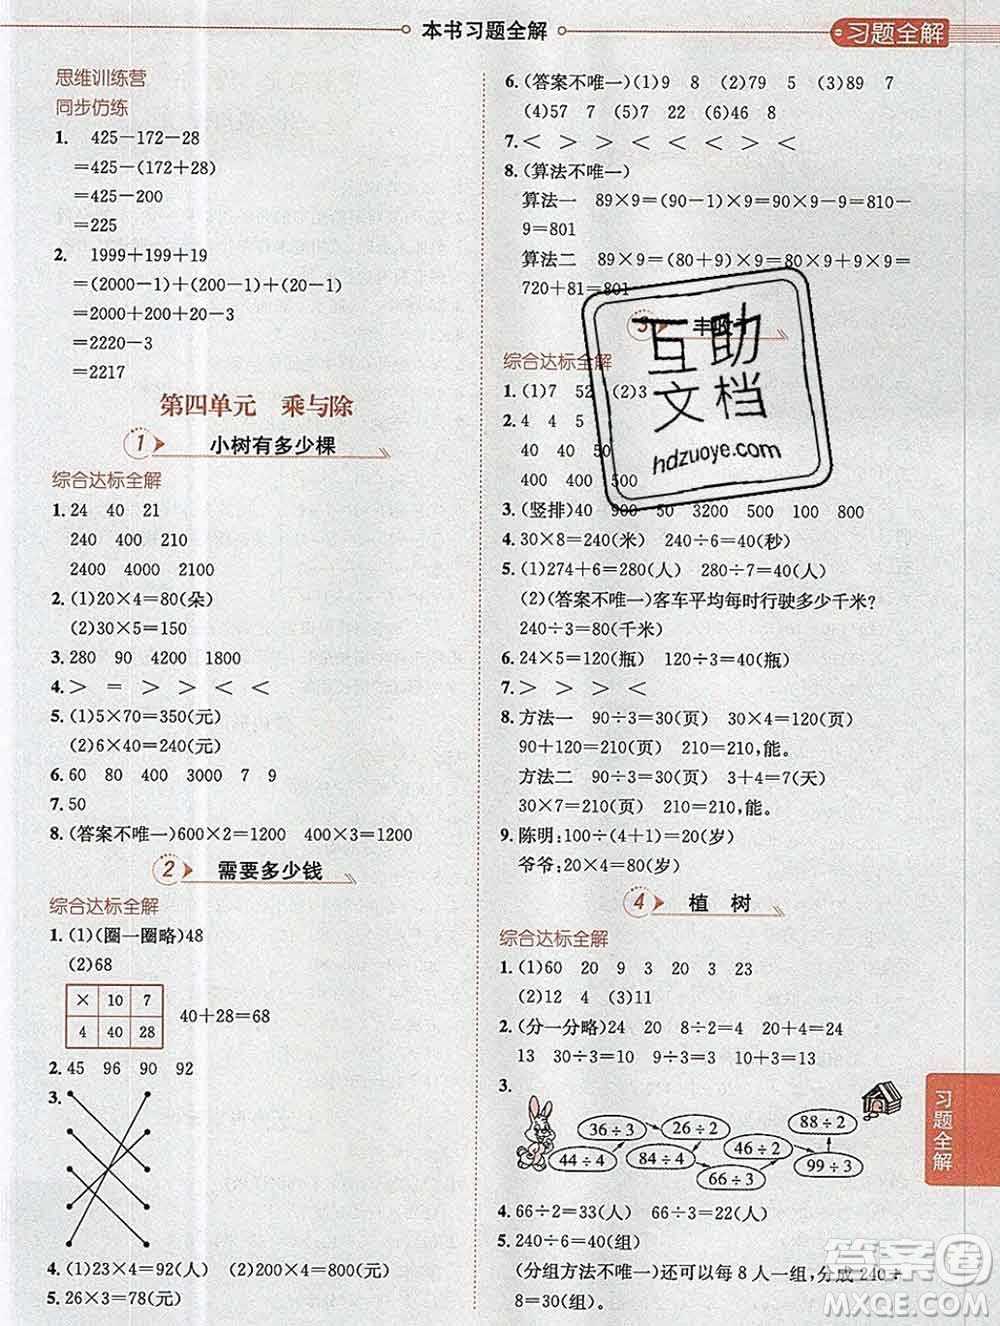 本书习题全解
习题全解
思维训练营
同步仿练
1. 425－172－28
＝425－(172＋28)
＝425－200
＝225
2. 1999＋199＋19
＝(2000－1)＋(200－1)＋(20－1)
＝2000＋200＋20－3
＝2220－3
＝2217
第四单元 乘与除
1 小树有多少棵
综合达标全解
1. 24 40 21
240 400 210
2400 4000 2100
2. (1)20×4＝80(朵)
(2)30×5＝150
3. 280 90 4200 1800
4. ＞ ＝ ＞ ＞ ＜ ＜
5. (1)5×70＝350(元)
(2)6×40＝240(元)
6. 60 80 400 3000 7 9
7. 50
8. (答案不唯一)600×2＝1200 400×3＝1200
2 需要多少钱
综合达标全解
1. (1)(圈一圈略)48
(2)68
× 10 7
4 40 28
40＋28＝68
2. 45 96 90 92
3.
4. (1)23×4＝92(人) (2)200×4＝800(人)
5. 26×3＝78(元)
6. (答案不唯一)(1)9 8 (2)79 5 (3)89 7
(4)57 7 (5)66 4 (6)48 2
7. ＜ ＞ ＜ ＞ ＞ ＜ ＞ ＜
8. (算法不唯一)
算法一 89×9＝(90－1)×9＝90×9－9＝810－
9＝801
算法二 89×9＝(80＋9)×9＝80×9＋9×9＝
720＋81＝801
3 丰收
综合达标全解
1. (1)7 52 (2)3
2. 4 4 5
40 40 50
400 400 500
3. (竖排)40 900 50 3200 500 100 800
4. 30×8＝240(米) 240÷6＝40(秒)
5. (1)274＋6＝280(人) 280÷7＝40(人)
(2)(答案不唯一)客车平均每时行驶多少千米?
240÷3＝80(千米)
6. 24×5＝120(瓶) 120÷3＝40(瓶)
7. ＞ ＞ ＞ ＜ ＜
8. 方法一 90÷3＝30(页) 30×4＝120(页)
90＋120＝210(页) 210＝210,能。
方法二 90÷3＝30(页) 3＋4＝7(天)
30×7＝210(页) 210＝210,能。
9. 陈明:100÷(4＋1)＝20(岁)
爷爷:20×4＝80(岁)
4 植 树
综合达标全解
1. (1)60 20 9 3 20 3 23
(2)12 4 (3)11
2. (分一分略)24 20 8÷2＝4 20＋4＝24
13 30÷3＝10 9÷3＝3 10＋3＝13
3.
36÷3 26÷2 88÷2
44÷4 84÷4 46÷2 99÷3
66÷3
4. 66÷2＝33(人) 66÷3＝22(人)
5. 240÷6＝40(组)
(分组方法不唯一)还可以每8人一组,分成240÷
8＝30(组)。
习题全解
互助文档
hdzuoye.com
答案圈
MXQE.COM